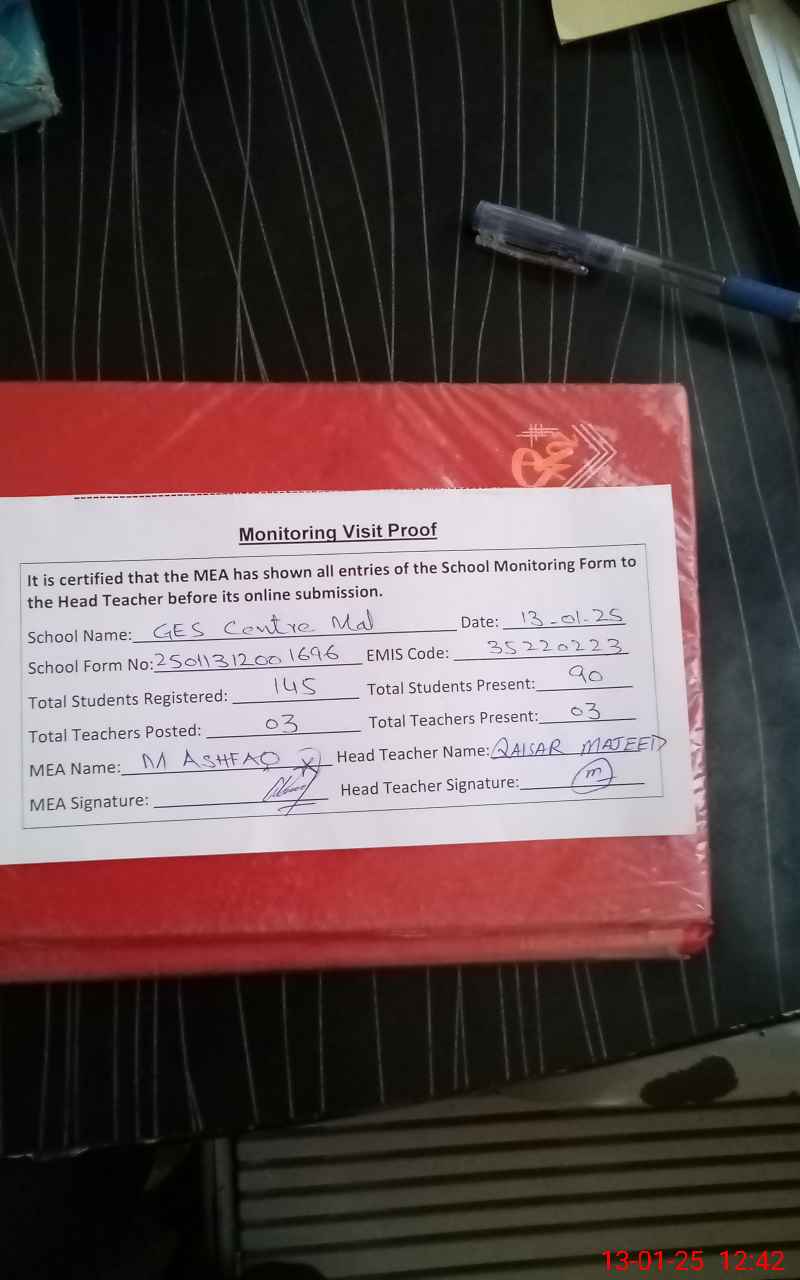 Monitoring Visit Proof
It is certified that the MEA has shown all entries of the School Monitoring Form to
the Head Teacher before its online submission.
School Name: GES Centre Mal Date: 13-01-25
School Form No: 25011312001696 EMIS Code: 35220223
Total Students Registered: 145 Total Students Present: 90
Total Teachers Posted: 03 Total Teachers Present: 03
MEA Name: M ASHFAQ Head Teacher Name: QAISAR MAJEED
MEA Signature: Head Teacher Signature: m
13-01-25 12:42